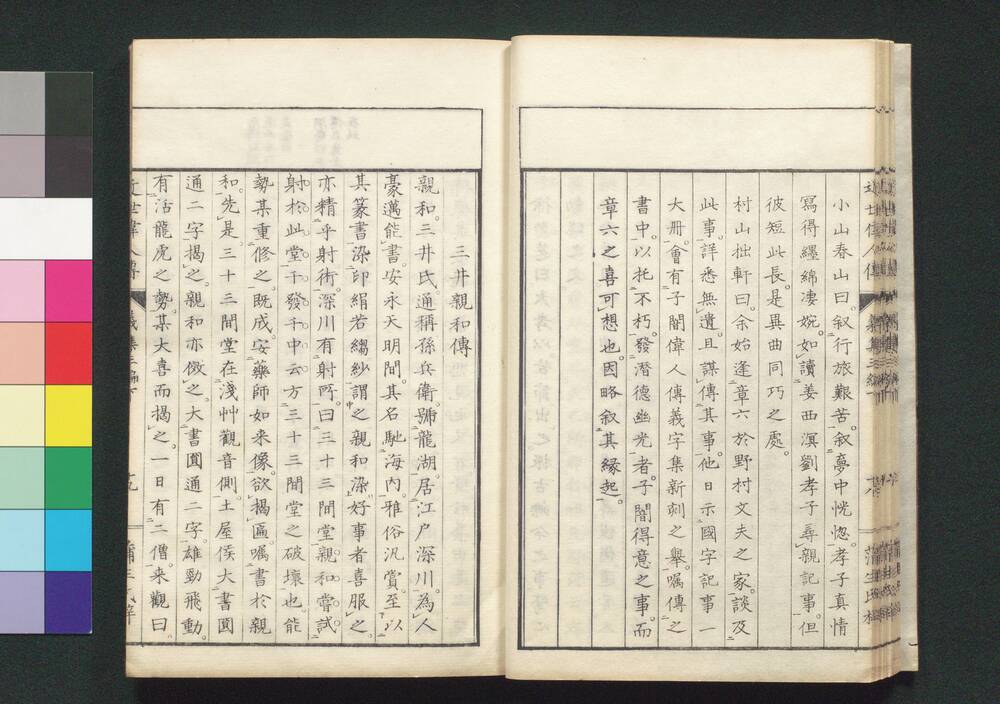 小山春山曰。叙行旅艱苦。叙夢中恍惚。孝子真情
寫得纒綿凄婉。如讀姜西溟劉孝子尋親記事。但
彼短此長。是異曲同巧之處。
村山拙軒曰。余始逢章六於野村文夫之家。談及
此事。詳悉無遺。且謀傳其事。他日示國字記事一
大册。會有子闇偉人傳義字集新刺之舉。嘱傳之
書中。以托不朽。發潛德幽光者。子闇得意之事。而
章六之喜可想也。因略叙其縁起。
三井親和傳
親和。三井氏。通稱孫兵衛。號龍湖。居江戸深川。為人
豪邁能書。安永天明間。其名馳海内。雅俗汎賞。至以
其篆書染印絹若縐紗。謂之親和染。好事者喜服之。
亦精乎射術。深川有射所。曰三十三間堂。親和嘗試
射於此堂。千發千中云。方三十三間堂之破壊也。能
勢某重修之。既成。安藥師如来像。欲揭匾。嘱書於親
和。先是三十三間堂在淺艸觀音側。土屋侯大書圓
通二字揭之。親和亦倣之。大書圓通二字。雄勁飛動。
有活龍虎之勢。某大喜而揭之。一日有二僧。来觀曰。